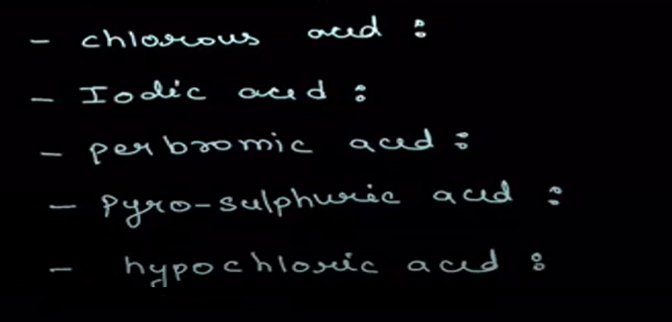 - chlorous acid :
- Iodic acid :
- perbromic acid :
- pyro-sulphuric acid :
- hypochloric acid :